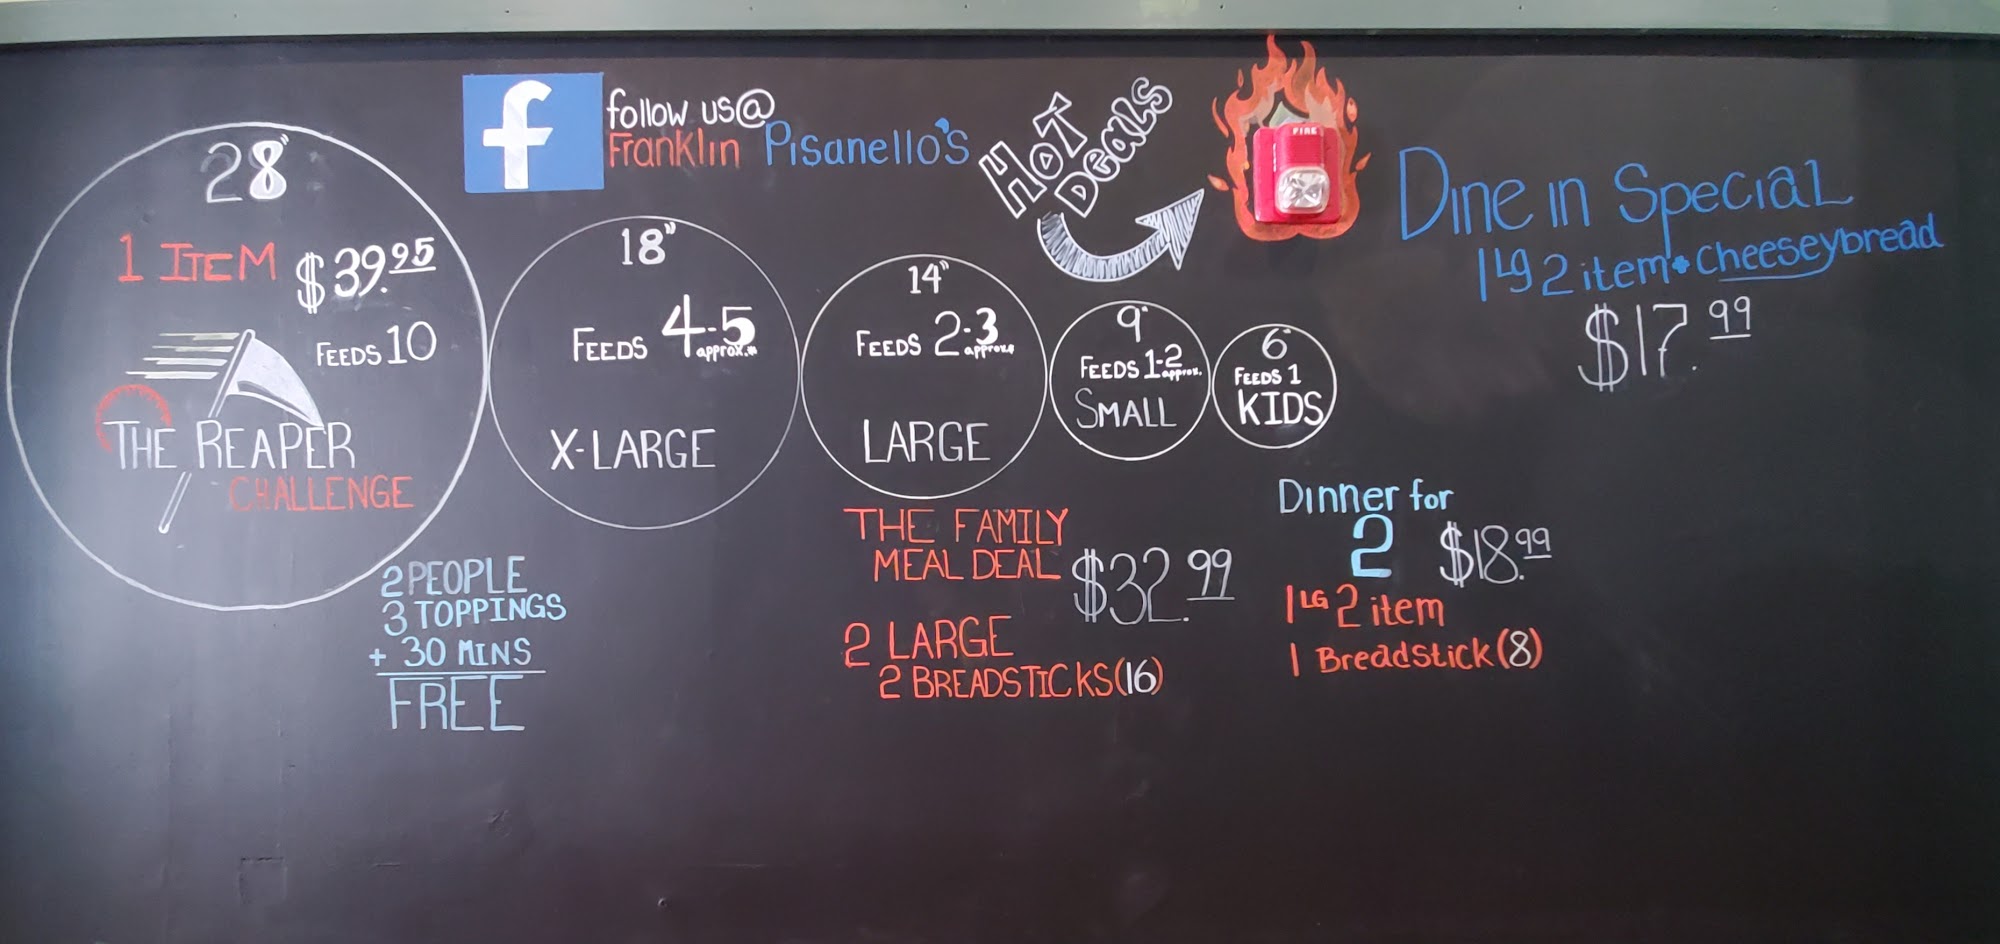 28"
1 ITEM $39.95
FEEDS 10
THE REAPER
CHALLENGE
2 PEOPLE
3 TOPPINGS
+ 30 MINS
FREE
f
follow us@
Franklin Pisanello's
18"
FEEDS 4-5
approx.
X-LARGE
14"
FEEDS 2-3
approx.
LARGE
9"
FEEDS 1-2
approx.
SMALL
6"
FEEDS 1
KIDS
HOT
DEALS
FIRE
Dine in Special
1 LG 2 item + Cheeseybread
$17.99
THE FAMILY
MEAL DEAL
$32.99
2 LARGE
2 BREADSTICKS(16)
Dinner for
2 $18.99
1 LG 2 item
1 Breadstick(8)